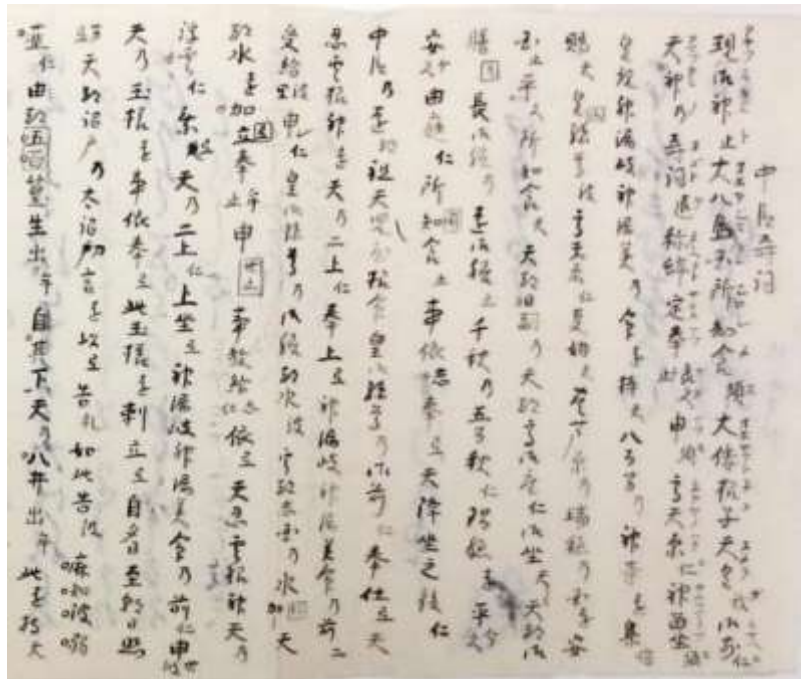 中臣寿詞
現御神止大八島国所知食須大倭根子天皇我御前仁
天神乃寿詞遠称辞定奉良久申須高天原仁神留坐須
皇親神漏岐神漏美乃命を持天八百万乃神等を集倍
賜天皇孫尊波高天原仁事始天豊葦原乃瑞穂乃国を安
国止平久所知食天天都日嗣乃天都高御座仁御坐天天都御
膳長御膳乃遠御膳止千秋乃五百秋仁瑞穂を平介久
安介久由庭仁所知食止事依志奉天天降坐之後仁
中臣乃遠都祖天児屋根命皇御孫尊乃御前仁奉仕天天
忍雲根神を天乃二上仁奉上天神漏岐神漏美命乃前二
受給波里申仁皇御孫尊乃御膳都水波宇都志国乃水加天
都水を加立奉牟止申事教給志仁依天天忍雲根神天乃
浮雲仁乗天乃二上仁上坐天神漏岐神漏美命乃前仁申世波
天乃玉櫛を事依奉天此玉櫛を刺立天自夕日至朝日照
天都詔戸乃太詔刀言を以天告礼如此告波麻知波弱
仁由都五百篁生出牟自其下天乃八井出牟此を持天